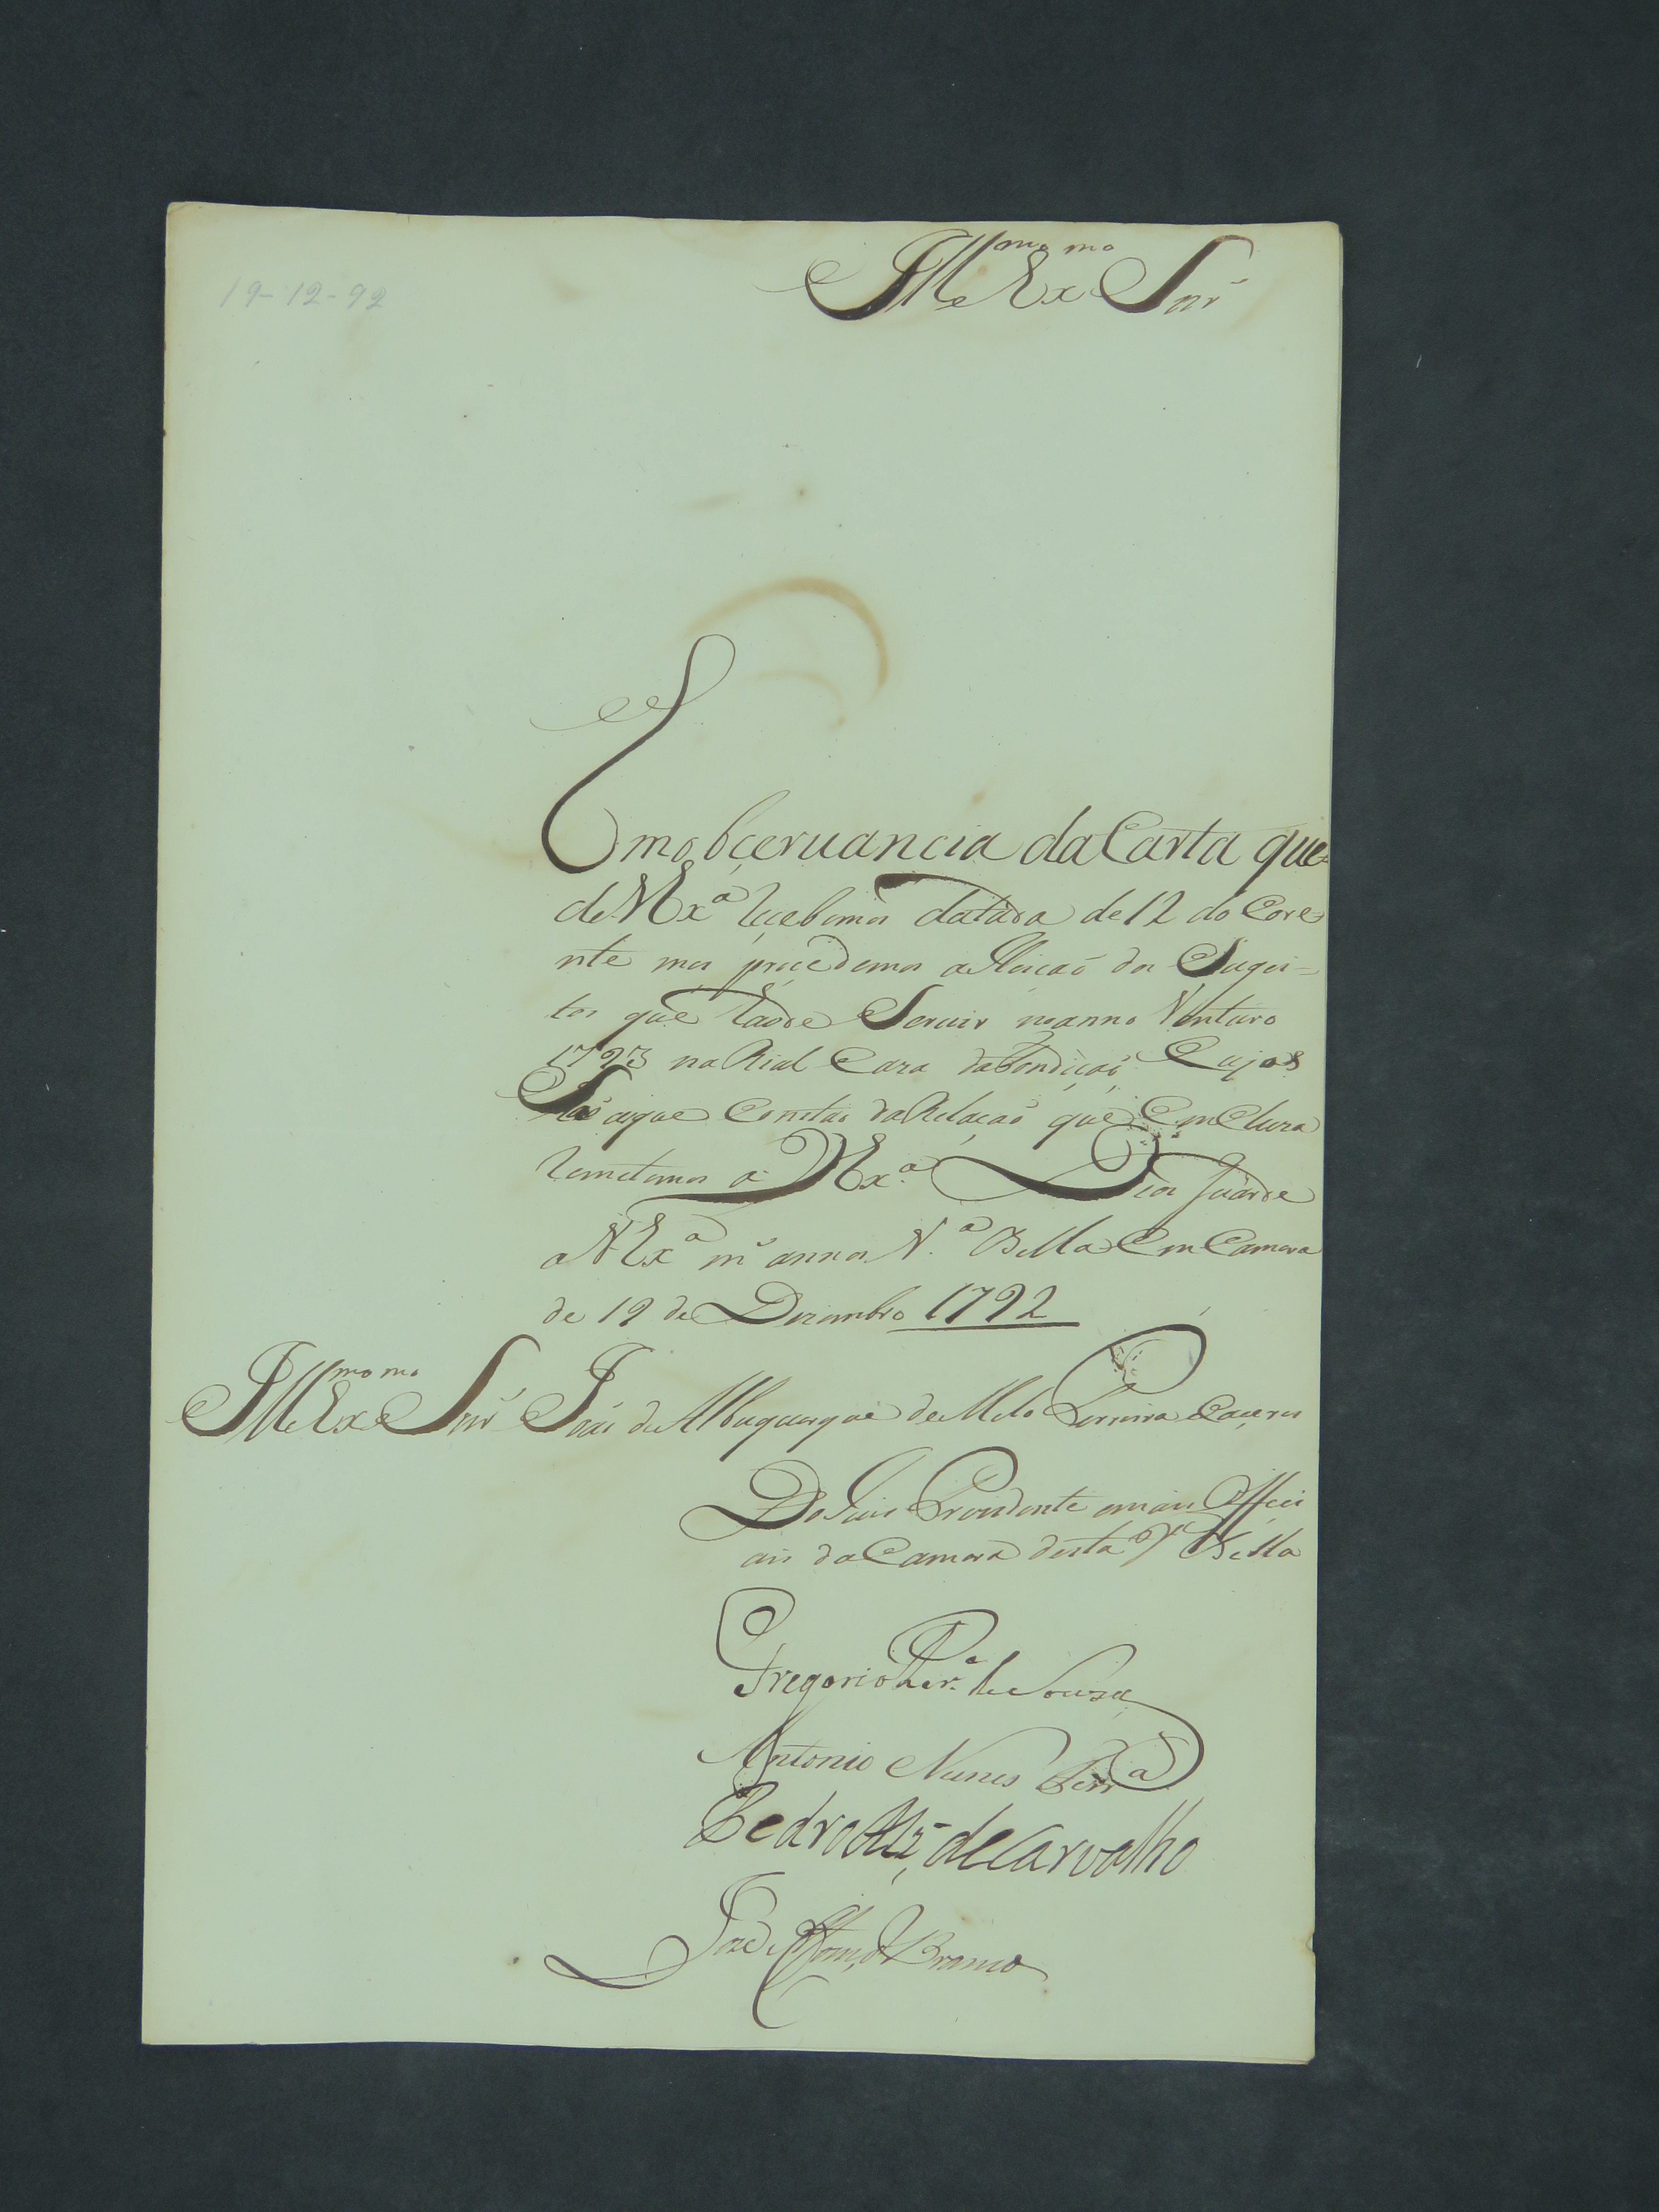 19-12-92
Ill.mo e Ex.mo Snr
Em obçeruancia da Carta que
de V Ex.a recebemos datada de 12 do Core=
nte mes procedemos a Eleicaõ dos Sugei=
tos que haõde Seruir no anno Venturo
1793 na Rial Caza da Fondiçaõ Cujos
Saõ os que Constaõ da Relacaõ que Em Cluza
remetemos a V Ex.a Deos Guarde
a V Ex.a m.s annos V.a Bella Em Camara
de 19 de Dezembro 1792
Ill.mo e Ex.mo Snr Joaõ de Albuquerque de Melo Pereira e Caçeres
Do Juis Prezidente e mais Offici
ais da Camara desta V.a Bella
Gregorio Per.a de Souza
Antonio Nunes
Pedro de Carvalho
Branco